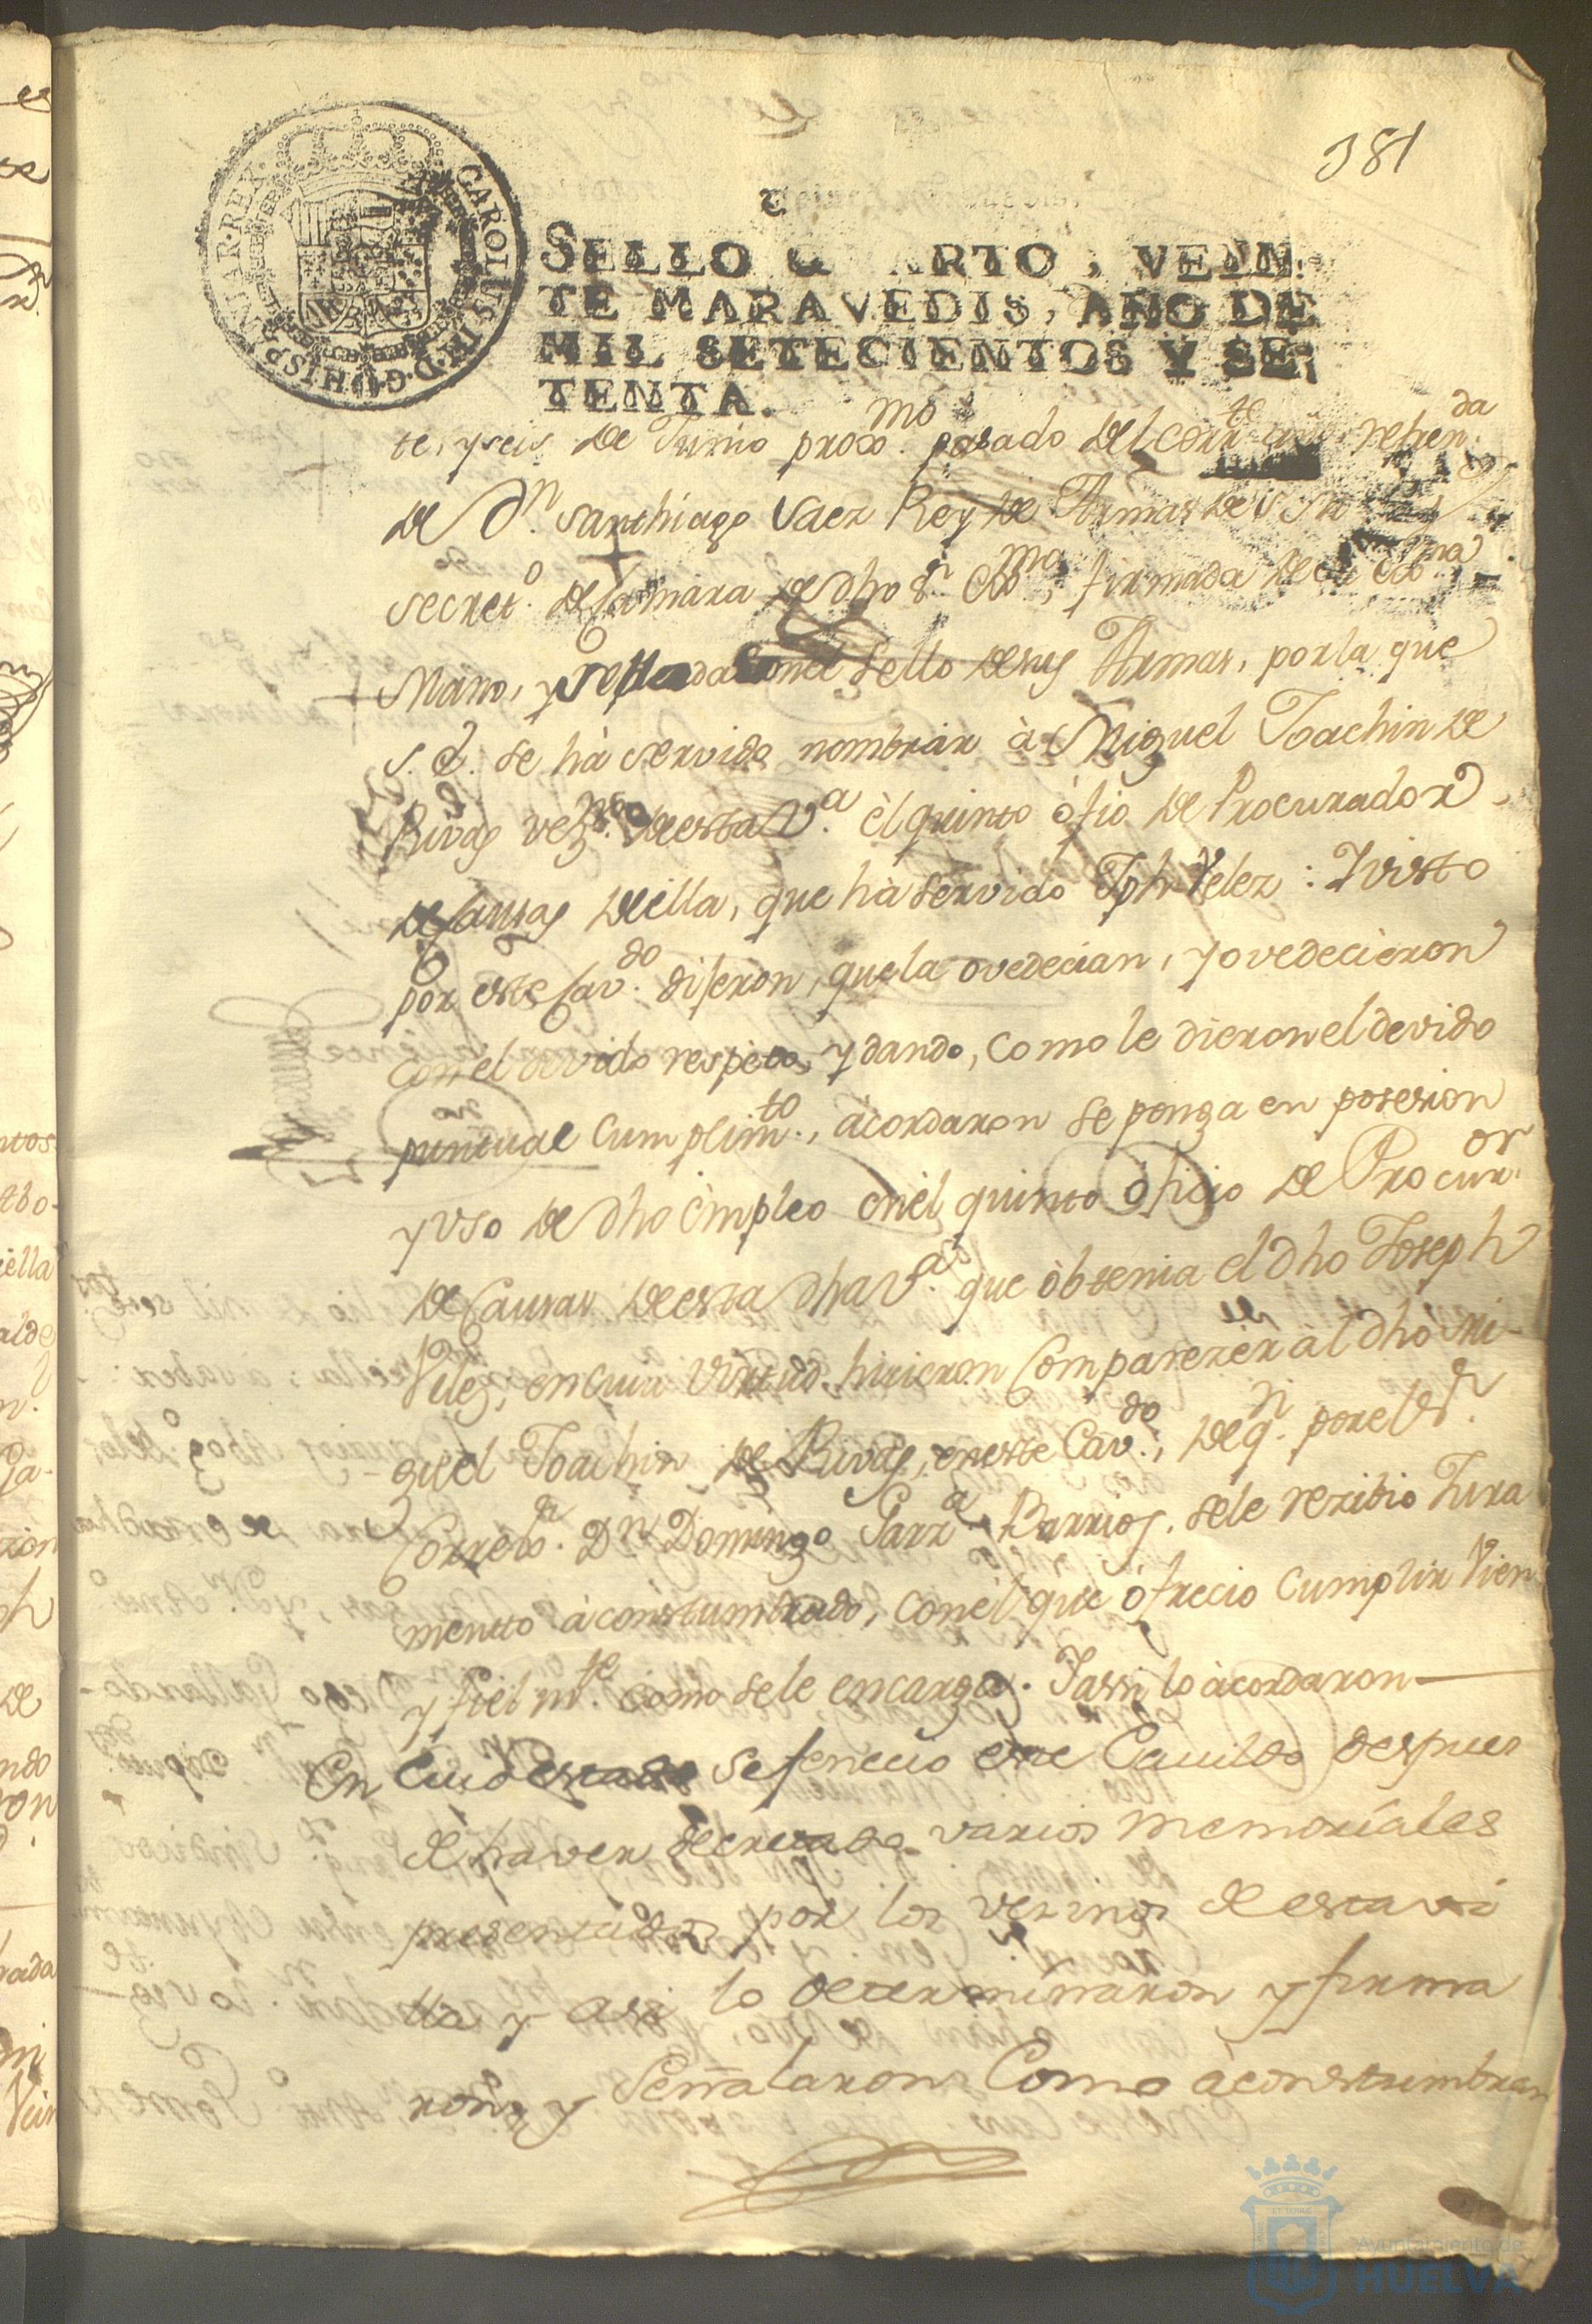 381
CAROLUS III D.G. HISPANIAR. REX.
SELLO QUARTO, VEIN-
TE MARAVEDIS, AÑO DE
MIL SETECIENTOS Y SE-
TENTA.
te, y seis de Junio proxo.mo pasado del corr.te año refren.da
de Dn. Santhiago Saez Rey de Armas de S.
secret.o de Camara de dho Sr. Exmo, firmada de su Exma
Mano, y sellada con el sello de sus Armas, por la que
S. E. se hà servido nombrar à Miguel Joachin de
Rivas vezno. de esta V.a èl quinto ofio de Procurador
de Causas de ella, que hà servido Jph Velez: Y visto
por este Cav.do dijeron, que la ovedecian, y ovedecieron
con el devido respeto, y dando, como le dieron el devido
puntual cumplim.to, àcordaron se ponga en posesion
y uso de dho èmpleo en èl quinto òficio de Procur.or
de Causas de esta dha V.a que òbtenia el dho Joseph
Velez, en cuia virtud hicieron comparezer àl dho Mi-
guel Joachin de Rivas, en este Cav.do, de q.n por el Sr.
Correxr. Dn. Domingo Garz.a Barrios, se le rezibio Jura
mentto àcostumbrado, con èl que ofrecio cumplir Vien
y fielm.te como se le encarga. Y assi lo àcordaron
En cuio estado se fenecio este Cavildo despues
de haver decretado varios memoriales
presentados por los vezinos de esta vi
lla y asi lo determinaron y firma
ron y señalaron como àcostumbran
Ayuntamiento de
HUELVA